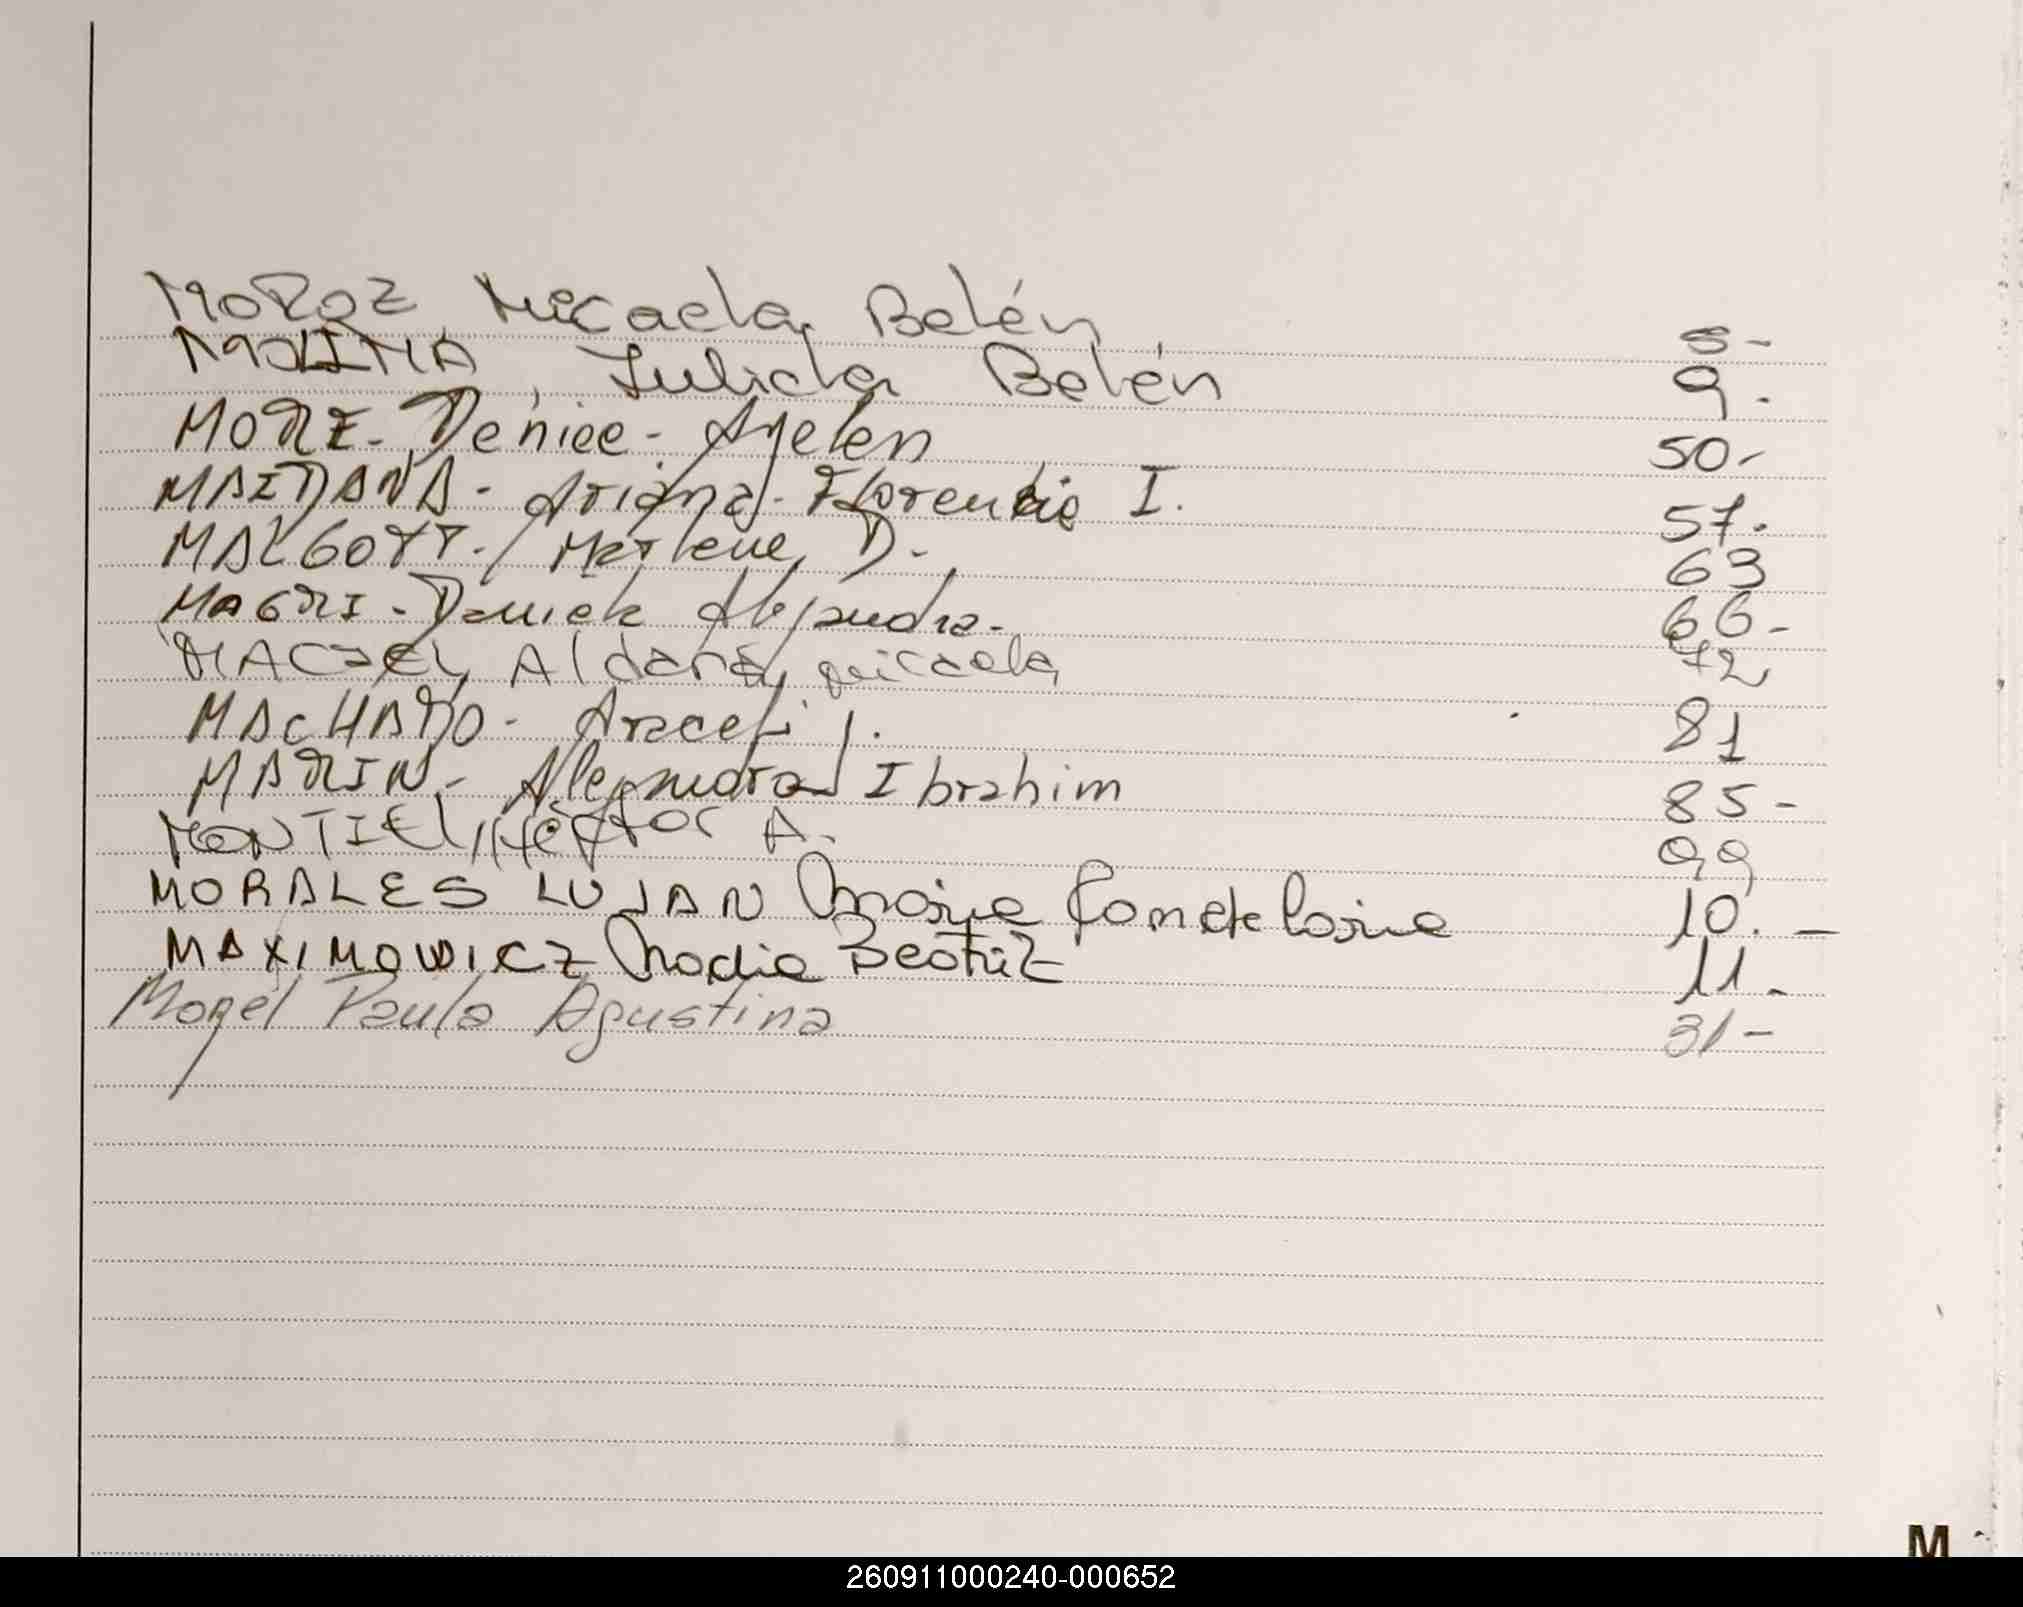 MOROZ Micaela, Belén 8-
MOLINA, Julieta Belén 9.
MORE. Denice. Ayelen 50-
MAIDANA- Ariana. Florencia I. 57.
MALGOTT. Marlene, D. 63
MAGRI-Daniela Alejandra. 66-
MACIEL, Aldana, Micaela 72
MACHADO- Araceli J. 81
MARIN- Alejandra Ibrahim 85-
MONTIEL, Héctor A. 99
MORALES LUJAN Maria Candelaria 10. -
MAXIMOWICZ Nadia Beatriz 11.-
Morel Paula Agustina 31-
M
260911000240-000652